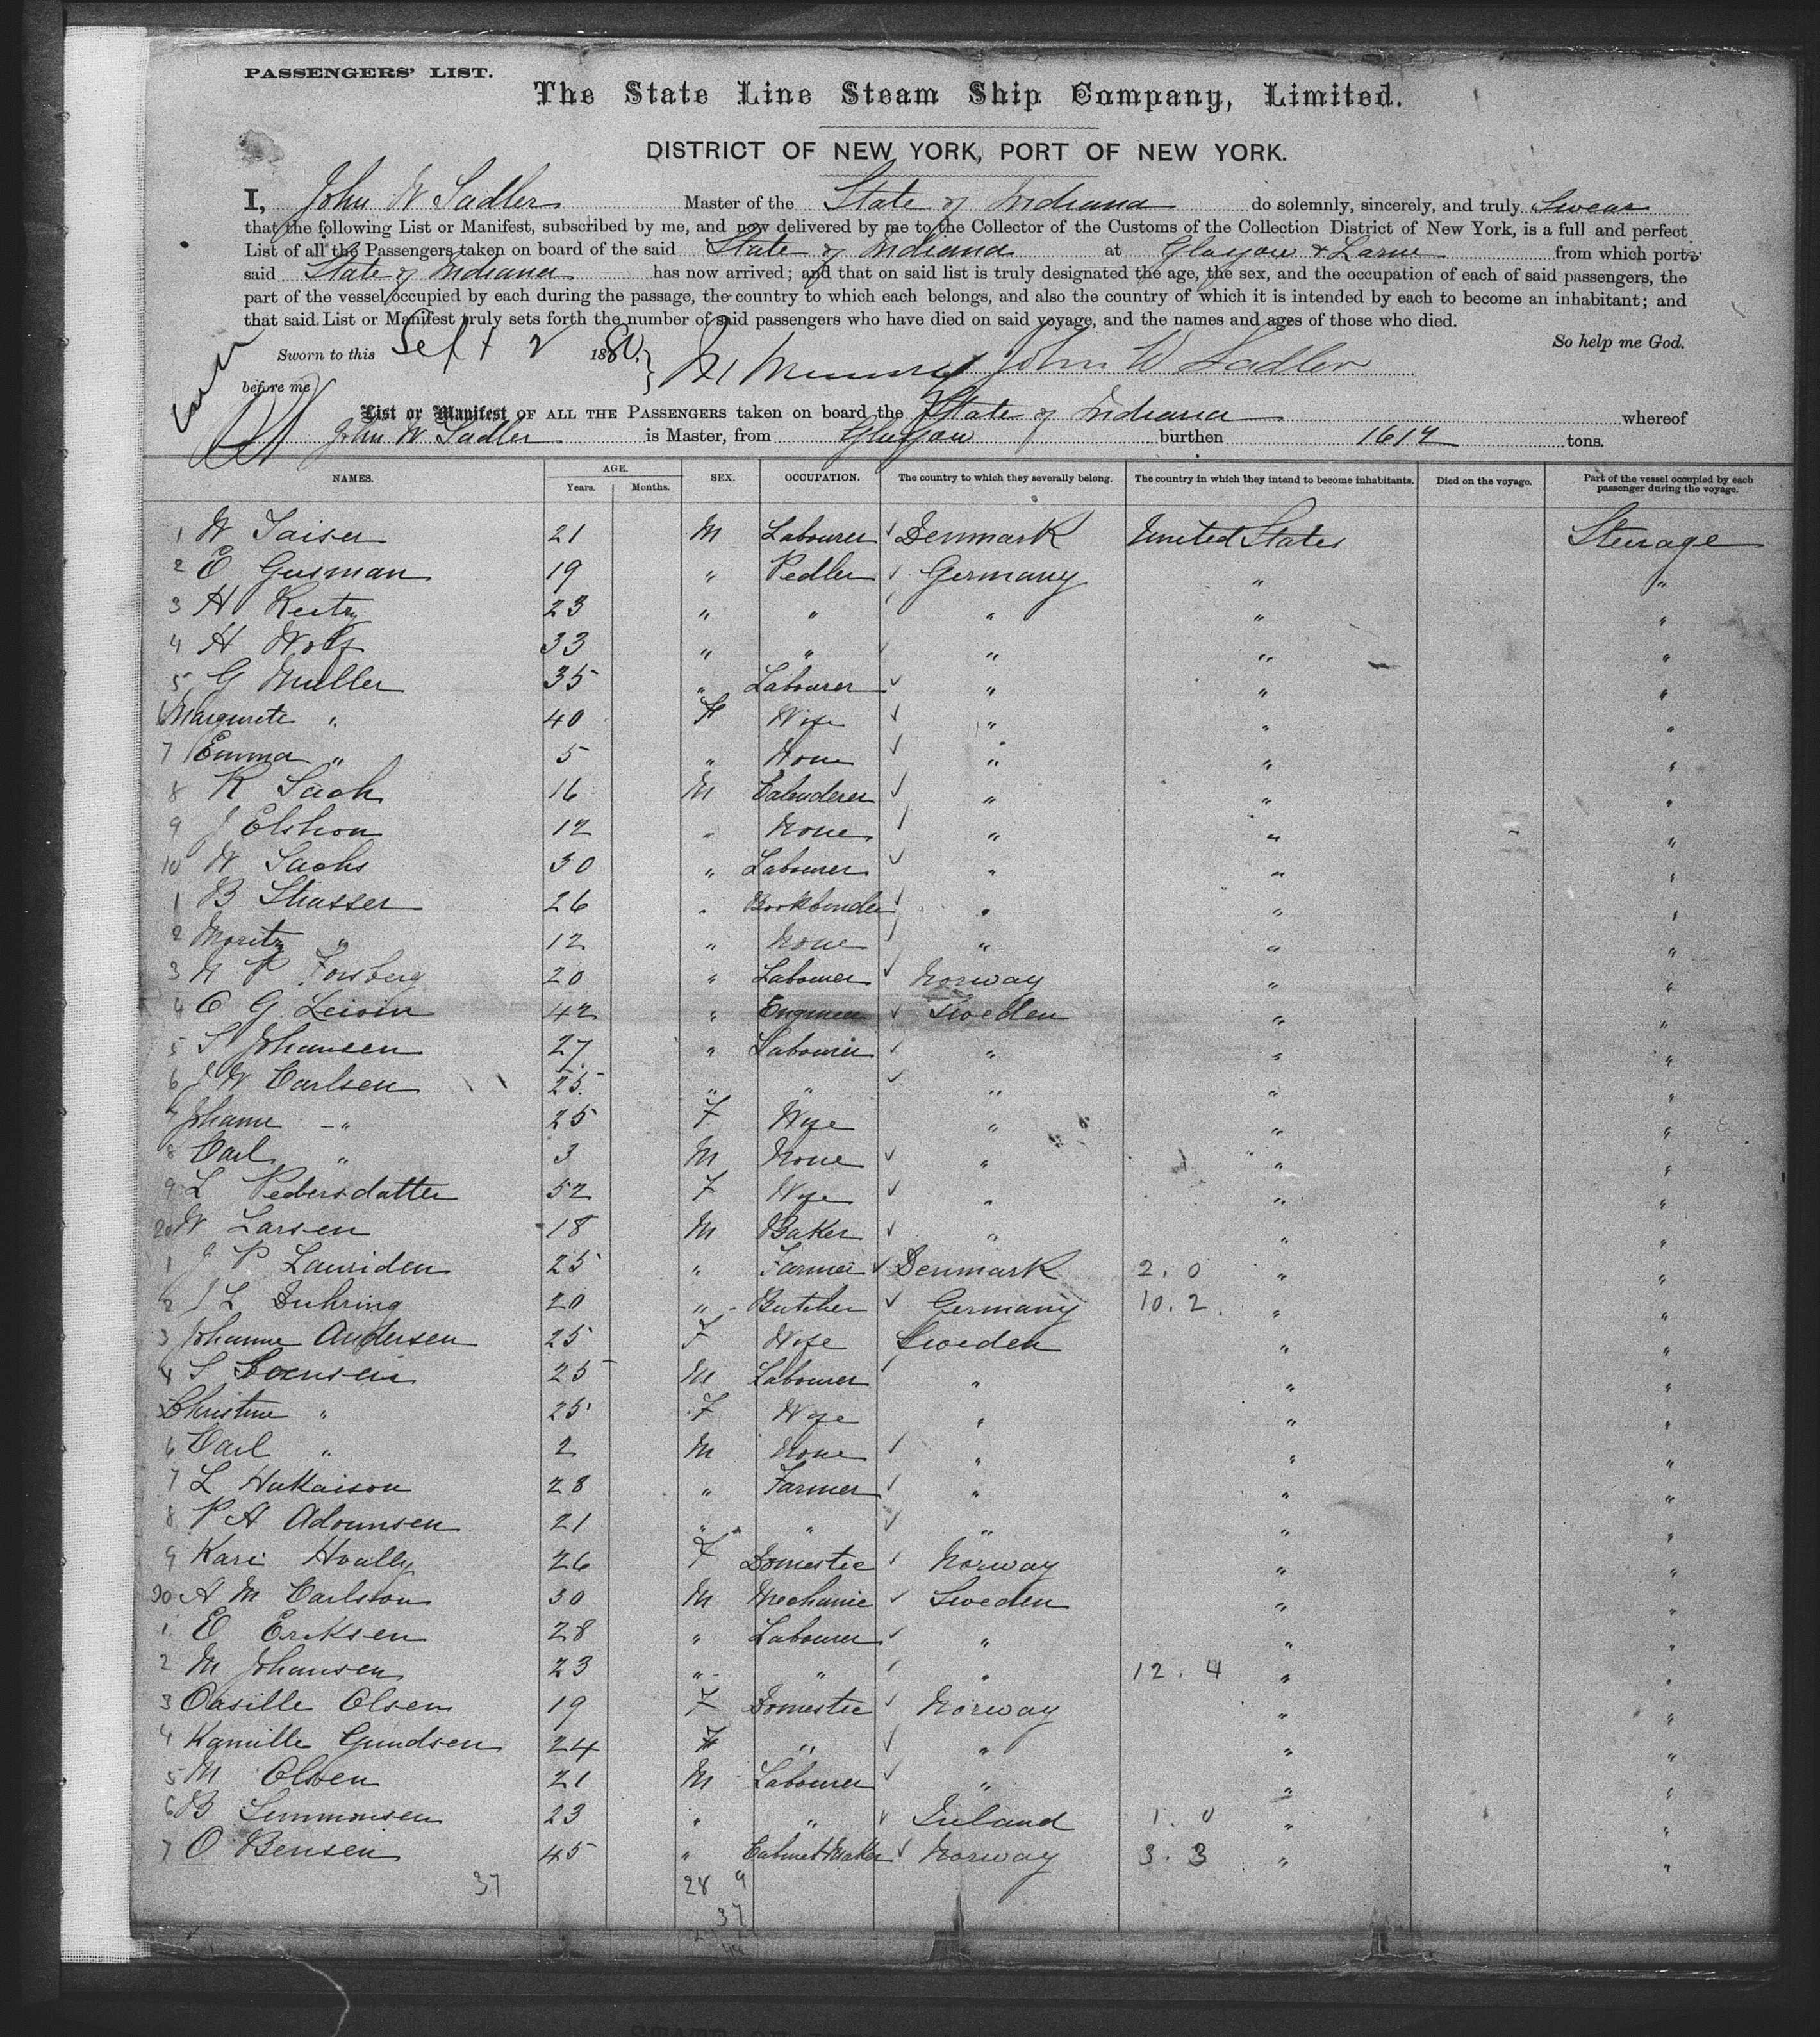 PASSENGERS' LIST.
The State Line Steam Ship Company, Limited.
DISTRICT OF NEW YORK, PORT OF NEW YORK.
I, John W Sadler Master of the State of Indiana do solemnly, sincerely, and truly Swear
that the following List or Manifest, subscribed by me, and now delivered by me to the Collector of the Customs of the Collection District of New York, is a full and perfect
List of all the Passengers taken on board of the said State of Indiana at Glasgow & Larne from which ports
said State of Indiana has now arrived; and that on said list is truly designated the age, the sex, and the occupation of each of said passengers, the
part of the vessel occupied by each during the passage, the country to which each belongs, and also the country of which it is intended by each to become an inhabitant; and
that said List or Manifest truly sets forth the number of said passengers who have died on said voyage, and the names and ages of those who died.
So help me God.
Sworn to this Sept 2 1880. John W Sadler
before me
List or Manifest OF ALL THE PASSENGERS taken on board the State of Indiana whereof
John W Sadler is Master, from Glasgow burthen 1617 tons.
NAMES. AGE. Years. Months. SEX. OCCUPATION. The country to which they severally belong. The country in which they intend to become inhabitants. Died on the voyage. Part of the vessel occupied by each passenger during the voyage.
1 W Taiser 21 M Labourer Denmark United States Steurage
2 E Gusman 19 " Pedler Germany " "
3 H 23 " " " " "
4 H Wolf 33 " " " " "
5 G Muller 35 " Labourer " " "
6 Marguerite " 40 F Wife " " "
7 Emma " 5 " None " " "
8 R Sach 16 M Calenderer " " "
9 J Elshon 12 " None " " "
10 W Sachs 30 " Labourer " " "
1 B Strasser 26 " Bookbinder " " "
2 Moritz " 12 " None " " "
3 P Forsberg 20 " Labourer Norway " "
4 C G 42 " Engineer Sweden " "
5 S Johansen 27 " Labourer " " "
6 J W Carlsen 25 " " " " "
7 Johanne " 25 F Wife " " "
8 Carl " 3 M None " " "
9 L Pedersdatter 52 F Wife " " "
20 W Larsen 18 M Baker " " "
1 J P Lauriden 25 " Farmer Denmark 2. 0 " "
2 J L Duhring 20 " Butcher Germany 10. 2 " "
3 Johanne Andersen 25 F Wife Sweden " "
4 S 25 M Labourer " " "
5 Christine " 25 F Wife " " "
6 Carl " 2 M None " " "
7 L Hakaison 28 " Farmer " " "
8 P A Adounsen 21 " " " " "
9 Kari Hvally 26 F Domestic Norway " "
30 A M Carlston 30 M Mechanic Sweden " "
1 E Eriksen 28 " Labourer " " "
2 M Johansen 23 " " " 12. 4 " "
3 Oasille Olsen 19 F Domestic Norway " "
4 Kamille Gundsen 24 F " " " "
5 M Olsen 21 M Labourer " " "
6 B Simmonsen 23 " " Ireland 1. 0 " "
7 O Bensen 45 " Cabinet Maker Norway 3. 3 " "
37 28 9
37